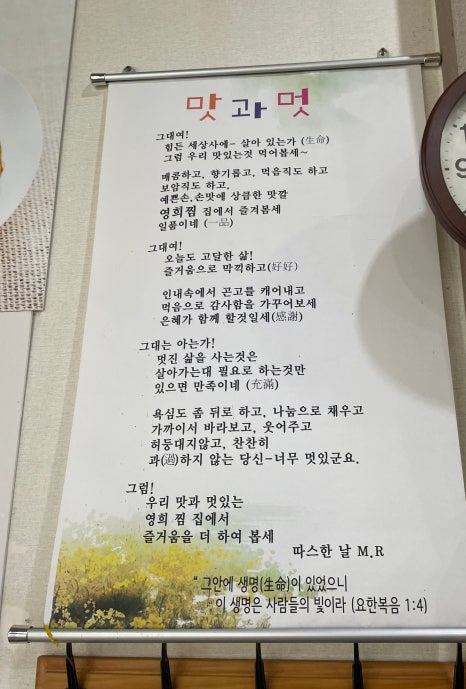 맛과멋
그대여!
힘든 세상사에- 살아 있는가 (生命)
그럼 우리 맛있는것 먹어봅세~
매콤하고, 향기롭고, 먹음직도 하고
보암직도 하고,
예쁜손,손맛에 상큼한 맛깔
영희찜 집에서 즐겨봅세
일품이네 (一品)
그대여!
오늘도 고달한 삶!
즐거움으로 만끽하고(好好)
인내속에서 곤고를 캐어내고
먹음으로 감사함을 가꾸어보세
은혜가 함께 할것일세(感謝)
그대는 아는가!
멋진 삶을 사는것은
살아가는대 필요로 하는것만
있으면 만족이네 (充滿)
욕심도 좀 뒤로 하고, 나눔으로 채우고
가까이서 바라보고, 웃어주고
허둥대지않고, 찬찬히
과(過)하지 않는 당신-너무 멋있군요.
그럼!
우리 맛과 멋있는
영희 찜 집에서
즐거움을 더 하여 봅세
따스한 날 M.R
" 그안에 생명(生命)이 있었으니
이 생명은 사람들의 빛이라 (요한복음 1:4)